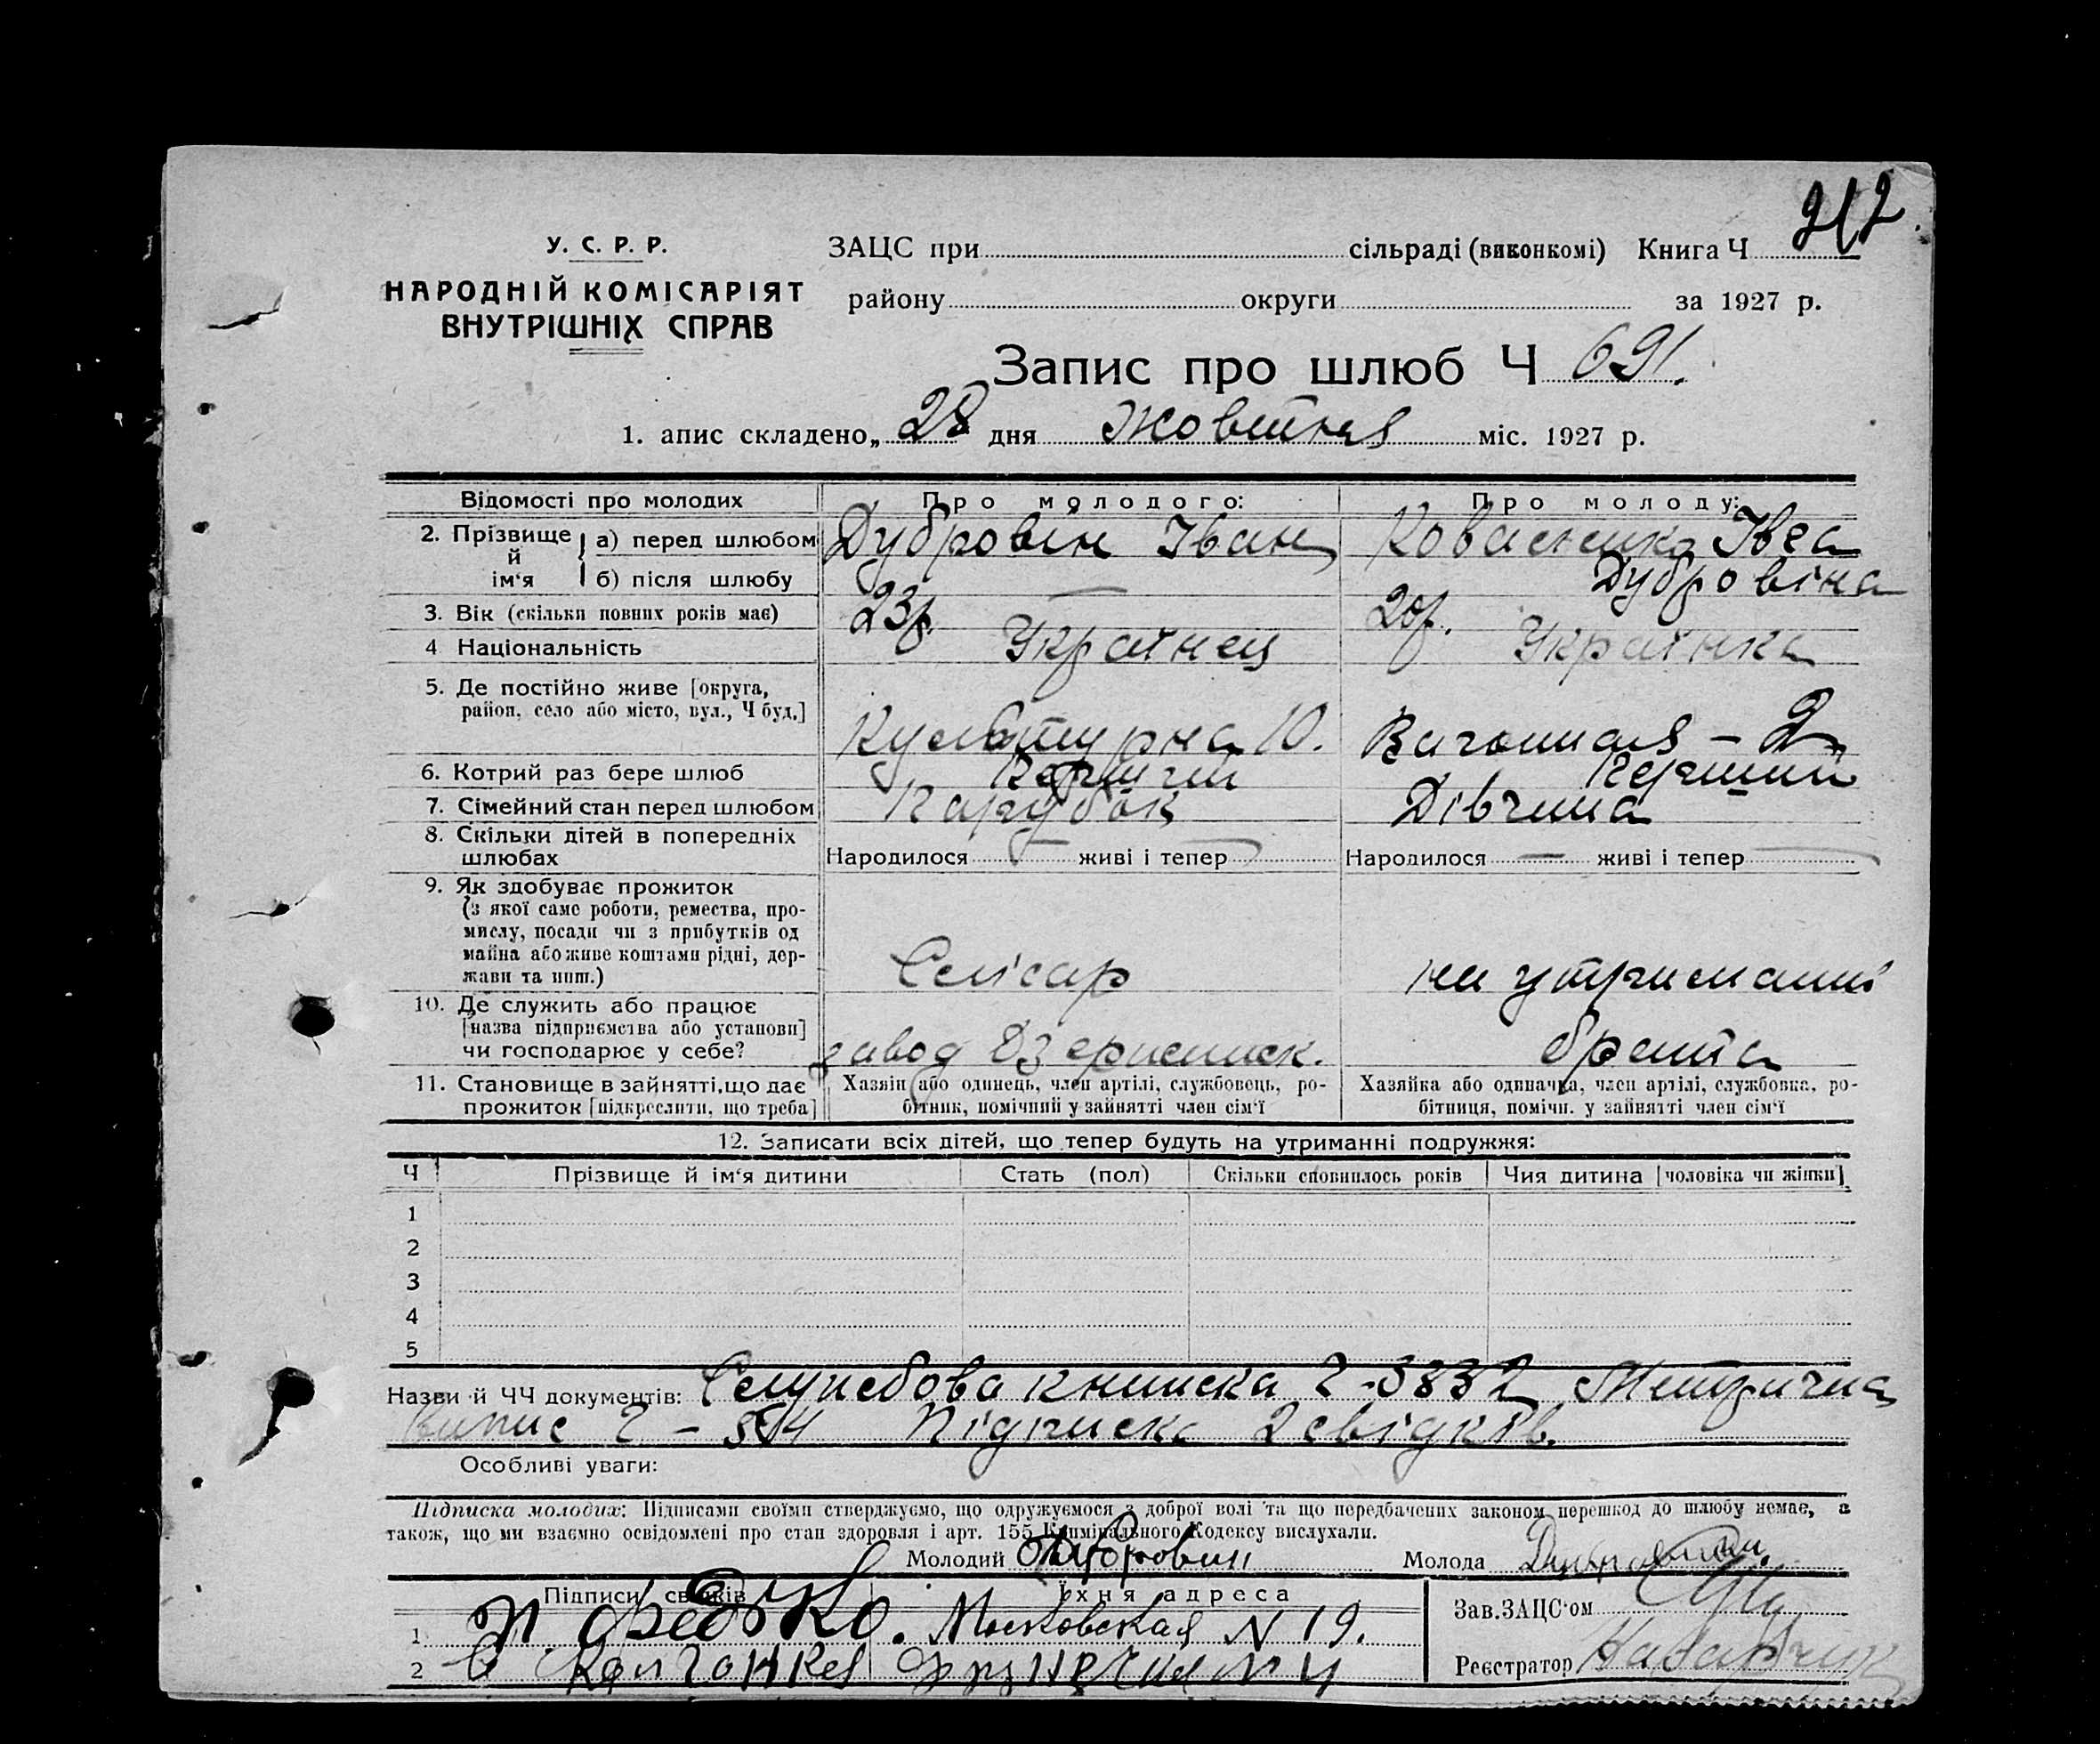 212
У. С. Р. Р.
НАРОДНІЙ КОМІСАРІЯТ
ВНУТРІШНІХ СПРАВ
ЗАЦС при сільраді (виконкомі) Книга Ч
району округи за 1927 р.
Запис про шлюб Ч 691.
1. апис складено „ 28 дня Жовтня міс. 1927 р.
Відомості про молодих Про молодого: Про молоду:
2. Прізвище й ім'я а) перед шлюбом Дубровін Іван Коваленко Івга
б) після шлюбу — Дубровіна
3. Вік (скільки повних років має) 23 р. 20 р.
4 Національність Українец Українка
5. Де постійно живе [округа,
район, село або місто, вул., Ч буд.] Культурна 10. Вагонная – 2
6. Котрий раз бере шлюб Перший Перший
7. Сімейний стан перед шлюбом Парубок Дівчина
8. Скільки дітей в попередніх
шлюбах Народилося — живі і тепер — Народилося — живі і тепер —
9. Як здобуває прожиток
(з якої саме роботи, ремества, про-
мислу, посади чи з прибутків од
майна або живе коштами рідні, дер-
жави та инш.) Слісар на утриманні
10. Де служить або працює
[назва підприємства або установи]
чи господарює у себе? завод Дзержинск. брата
11. Становище в зайнятті, що дає
прожиток [підкреслити, що треба]
Хазяін або одинець, член артілі, службовець, ро-
бітник, помічний у зайнятті член сім'ї
Хазяйка або одиначка, член артілі, службовка, ро-
бітниця, помічн. у зайнятті член сім'ї
12. Записати всіх дітей, що тепер будуть на утриманні подружжя:
Ч Прізвище й ім'я дитини Стать (пол) Скільки сповнилось років Чия дитина [чоловіка чи жінки]
1
2
3
4
5
Назви й ЧЧ документів: Службова книжка Ч-3832 Метрична
випис Ч – 554 Підписка 2 свідків.
Особливі уваги:
Підписка молодих: Підписами своїми стверджуємо, що одружуємося з доброї волі та що передбачених законом перешкод до шлюбу немає, а
також, що ми взаємно освідомлені про стан здоровля і арт. 155 Кримінального Кодексу вислухали.
Молодий Дубровин Молода
Підписи свідків Їхня адреса
1 П. Федько. Московская N 19.
2 N 4
Зав. ЗАЦС'ом
Реєстратор Назарчук